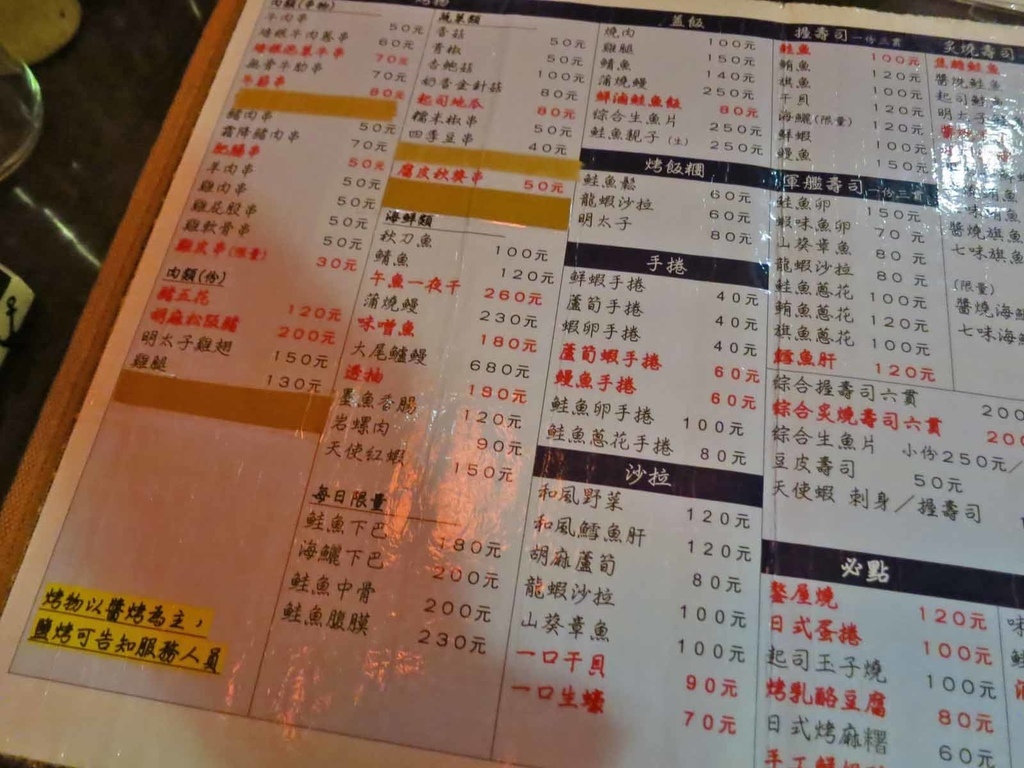 烤物
肉類(串物)
牛肉串 50元
培根牛肉蔥串 60元
培根泡菜牛串 70元
無骨牛肋串 70元
牛筋串 80元
豬肉串 50元
霜降豬肉串 70元
肥腸串 50元
羊肉串 50元
雞肉串 50元
雞屁股串 50元
雞軟骨串 50元
雞皮串(限量) 30元
肉類(份)
豬五花 120元
胡麻松阪豬 200元
明太子雞翅 150元
雞腿 130元
烤物以醬烤為主，
鹽烤可告知服務人員
蔬菜類
香菇 50元
青椒 50元
杏鮑菇 100元
奶香金針菇 80元
起司地瓜 80元
糯米椒串 50元
四季豆串 40元
腐皮秋葵串 50元
海鮮類
秋刀魚 100元
鯖魚 120元
午魚一夜干 260元
蒲燒鰻 230元
味噌魚 180元
大尾鱸鰻 680元
透抽 190元
墨魚香腸 120元
岩螺肉 90元
天使紅蝦 150元
每日限量
鮭魚下巴 180元
海鱺下巴 200元
鮭魚中骨 200元
鮭魚腹膜 230元
蓋飯
燒肉 100元
雞腿 150元
鯖魚 140元
蒲燒鰻 250元
鮮滷鮭魚飯 80元
綜合生魚片 250元
鮭魚親子(生) 250元
烤飯糰
鮭魚鬆 60元
龍蝦沙拉 60元
明太子 80元
手捲
鮮蝦手捲 40元
蘆筍手捲 40元
蝦卵手捲 40元
蘆筍蝦手捲 60元
鰻魚手捲 60元
鮭魚卵手捲 100元
鮭魚蔥花手捲 80元
沙拉
和風野菜 120元
和風鱈魚肝 120元
胡麻蘆筍 80元
龍蝦沙拉 100元
山葵章魚 100元
一口干貝 90元
一口生蠔 70元
握壽司 一份三貫
鮭魚 100元
鮪魚 120元
旗魚 100元
干貝 120元
海鱺(限量) 120元
鮮蝦 100元
鰻魚 150元
軍艦壽司 一份三貫
鮭魚卵 150元
蝦味魚卵 70元
山葵章魚 80元
龍蝦沙拉 80元
鮭魚蔥花 100元
鮪魚蔥花 120元
旗魚蔥花 100元
鱈魚肝 120元
綜合握壽司六貫 200
綜合炙燒壽司六貫 200
綜合生魚片 小份250元/
豆皮壽司 50元
天使蝦 刺身/握壽司
必點
鏊屋燒 120元
日式蛋捲 100元
起司玉子燒 100元
烤乳酪豆腐 80元
日式烤麻糬 60元
炙燒壽司
焦糖鮭魚
醬燒鮭魚
起司鮭
明太子
醬燒旗魚
七味旗魚
(限量)
醬燒海鱺
七味海鱺